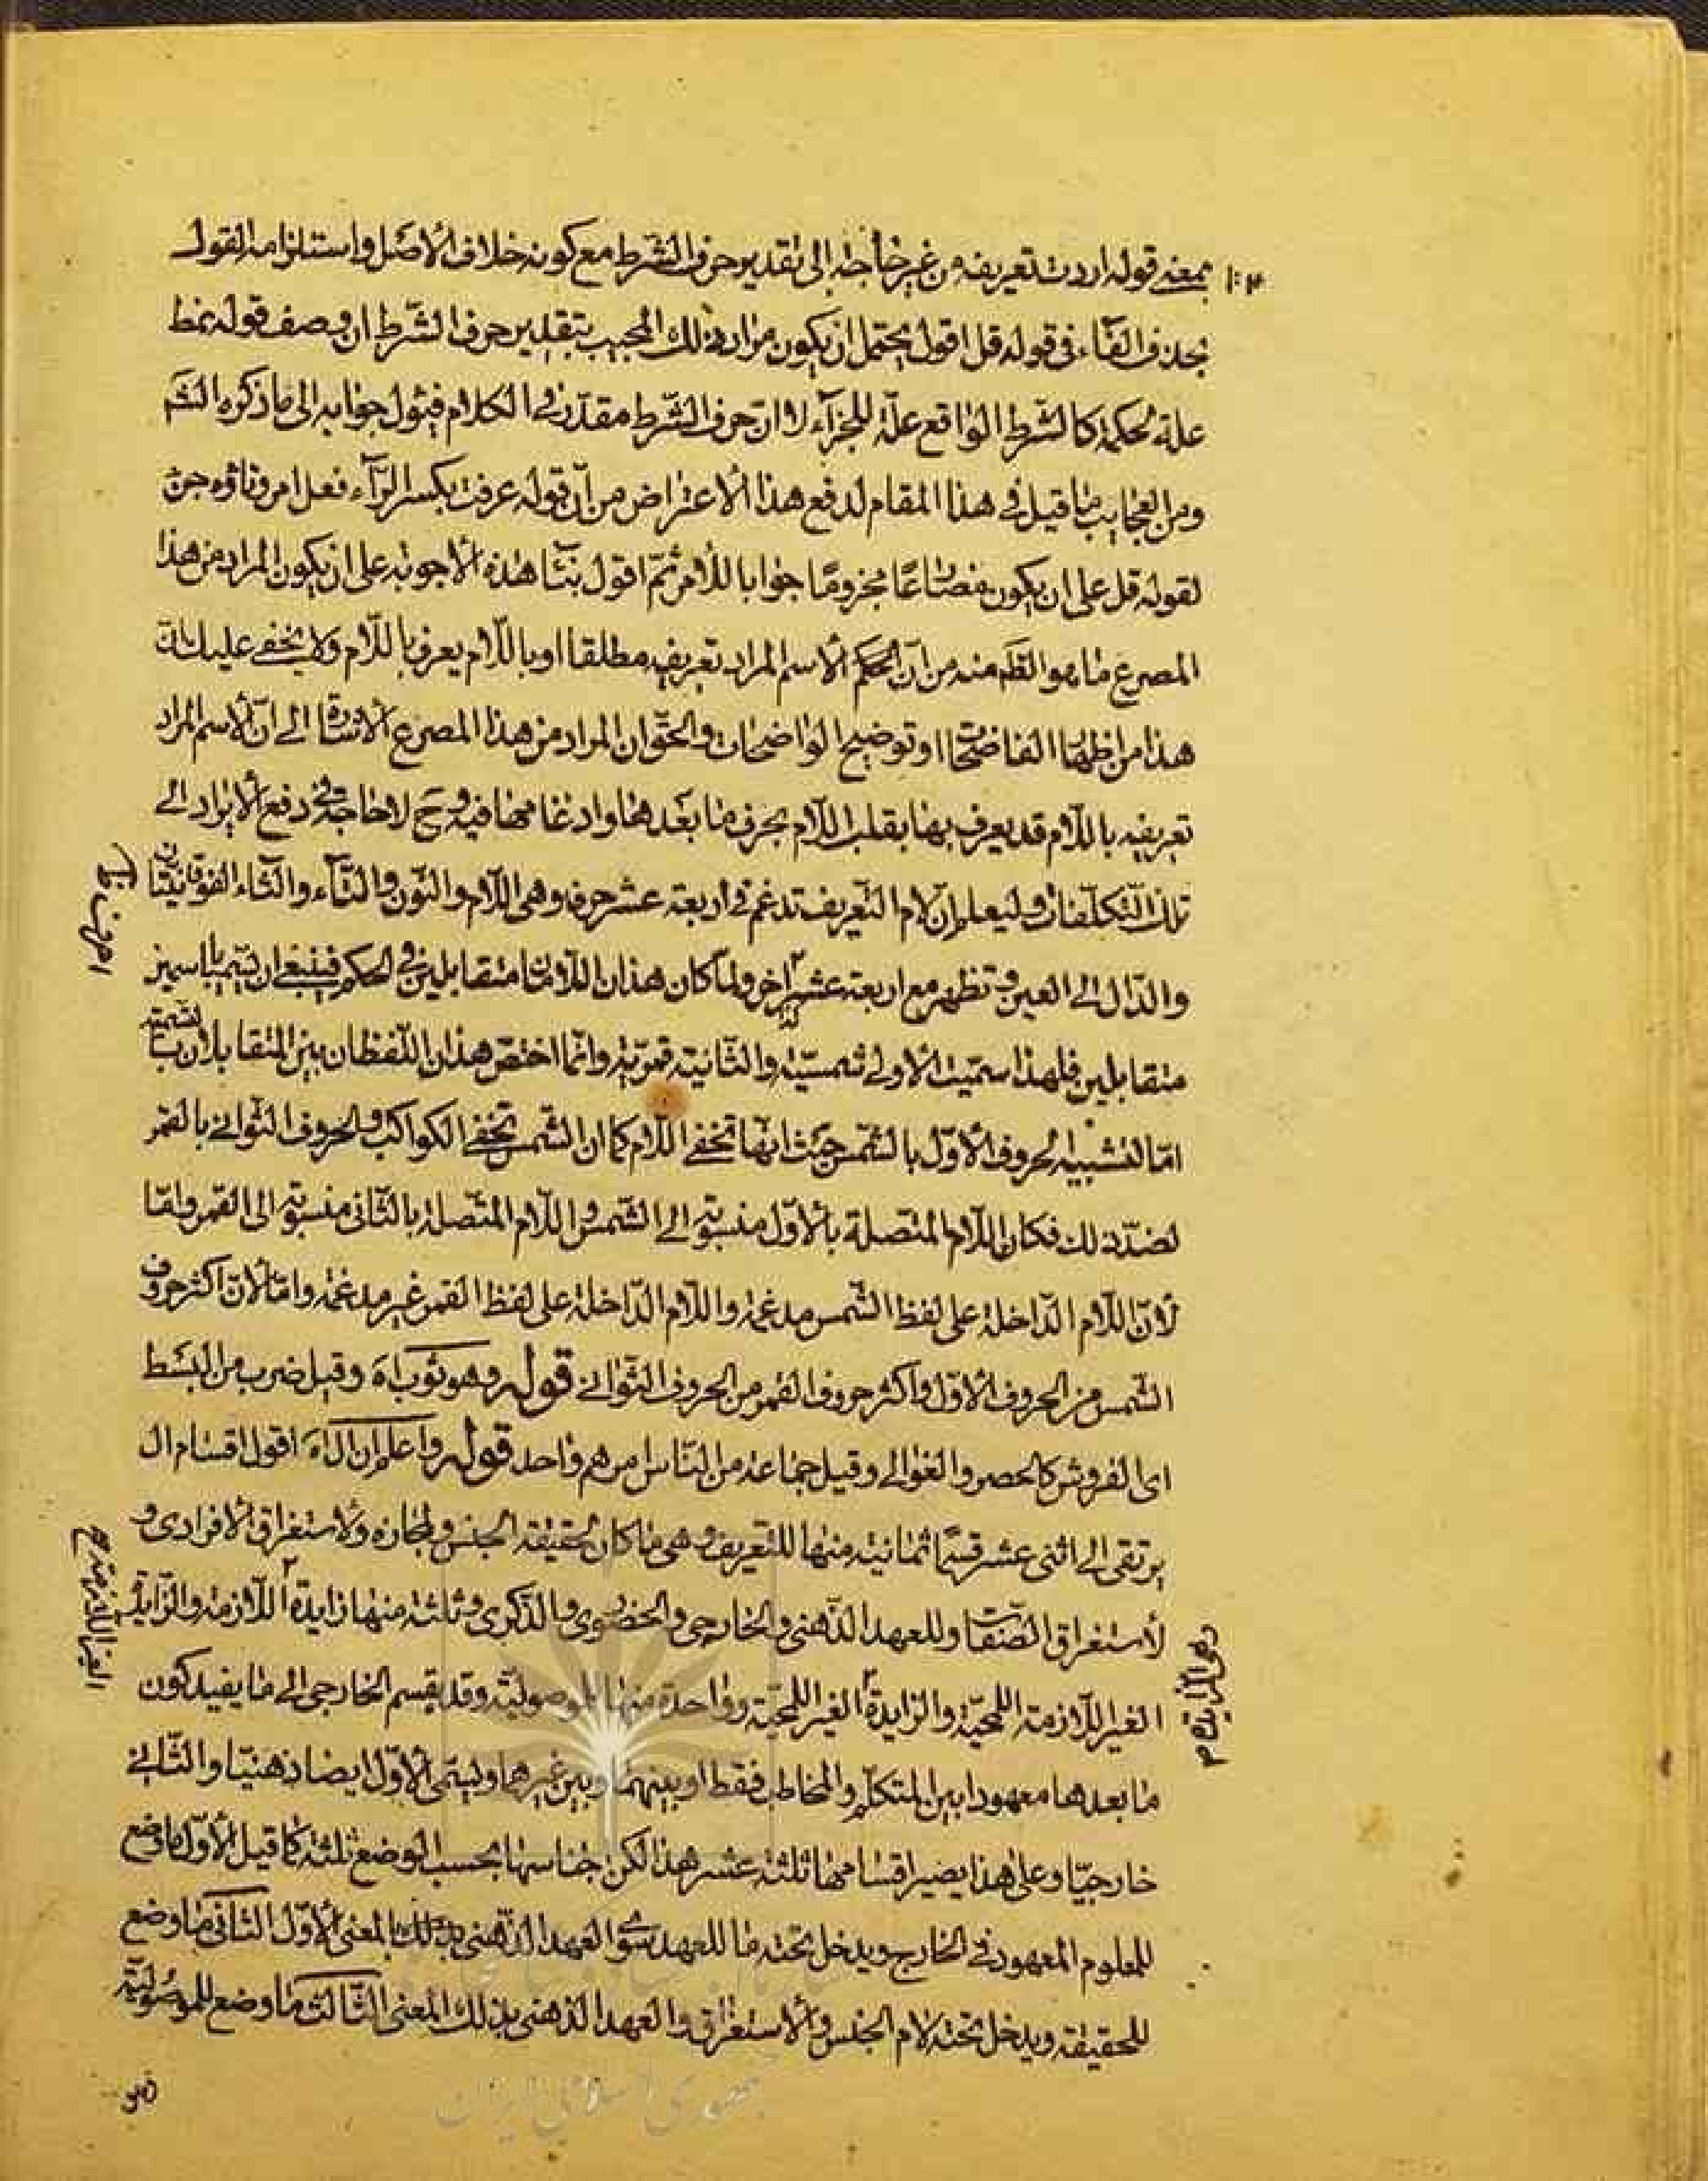 بمعنى قوله اردت تعريفه من غير حاجة الى تقدير حرف الشرط مع كونه خلاف الأصل واستلزامه القول
بحذف الفاء في قوله قل اقول يحتمل ان يكون مراد ذلك المجيب بتقدير حرف الشرط ان وصف قوله نمط
علة لحكمه كالشرط الواقع علة للجزاء لا ان حرف الشرط مقدر في الكلام فيئول جوابه الى ما ذكره الشم
ومن العجايب ما قيل في هذا المقام لدفع هذا الاعتراض من ان قوله عرفت بكسر الراء فعل امر وتاؤه جزء
لقوله قل على ان يكون مضارعًا مجزومًا جوابا للأمر ثم اقول بناء هذه الأجوبة على ان يكون المراد من هذا
المصرع ما هو الظم منه من ان الحكم الاسم المراد تعريفه مطلقا او باللام يعرف باللام ولا يخفى عليك ان
هذا من اظهار الفاضحات او توضيح الواضحات والحق ان المراد من هذا المصرع الاشارة الى ان الاسم المراد
تعريفه باللام قد يعرف بها بقلب اللام بحرف ما بعدها وادغامها فيه وح لا حاجة في دفع الايراد الى
تلك التكلفات وليعلم ان لام التعريف تدغم في اربعة عشر حرفا وهي اللام والنون والتاء والثاء الفوقانيتان
والدال الى العين وتظهر مع اربعة عشر اخر ولما كان هذان اللامان متقابلين في الحكم فينبغي ان تسميا باسمين
متقابلين فلهذا سميت الاولى شمسية والثانية قمرية وانما اختص هذان اللفظان من بين المتقابلات بالتسمية
اما لتشبيه الحروف الأول بالشمس حيث انها تخفى اللام كما ان الشمس تخفى الكواكب والحروف الثواني بالقمر
لضد ذلك فكان اللام المتصلة بالأول منسوبة الى الشمس واللام المتصلة بالثاني منسوبة الى القمر واما
لأن اللام الداخلة على لفظ الشمس مدغمة واللام الداخلة على لفظ القمر غير مدغمة واما لأن اكثر حروف
الشمس من الحروف الأول واكثر حروف القمر من الحروف الثواني قوله وهو ثوب اه وقيل ضرب من البسط
اى الفروش كالحصر والغوالى وقيل جماعة من الناس امرهم واحد قوله واعلم ان ال اه اقول اقسام ال
يرتقى الى اثنى عشر قسمًا ثمانية منها للتعريف وهي ما كان لحقيقة الجنس ولمجازه ولاستغراق الافرادى و
لأستغراق الصفات وللعهد الذهنى والخارجى والحضورى والذكرى وثلثة منها زايدة اللازمة والزايدة
الغير اللازمة اللمحية والزايدة الغير اللمحية وواحدة منها الموصولية وقد يقسم الخارجى الى ما يفيد كون
ما بعدها معهودا بين المتكلم والمخاطب فقط او بينهما وبين غيرهما ويسمى الأول ايضا ذهنيا والثانى
خارجيا وعلى هذا يصير اقسامها ثلثة عشر هذا لكن اجناسها بحسب الوضع ثلثة كما قيل الأول ما وضع
للمعلوم المعهود في الخارج ويدخل تحته ما للعهد سوى العهد الذهنى بذلك المعنى الأول الثانى ما وضع
للحقيقة ويدخل تحته لام الجنس والاستغراق والعهد الذهنى بذلك المعنى الثالث ما وضع للموصولية
جمهوری اسلامی ایران